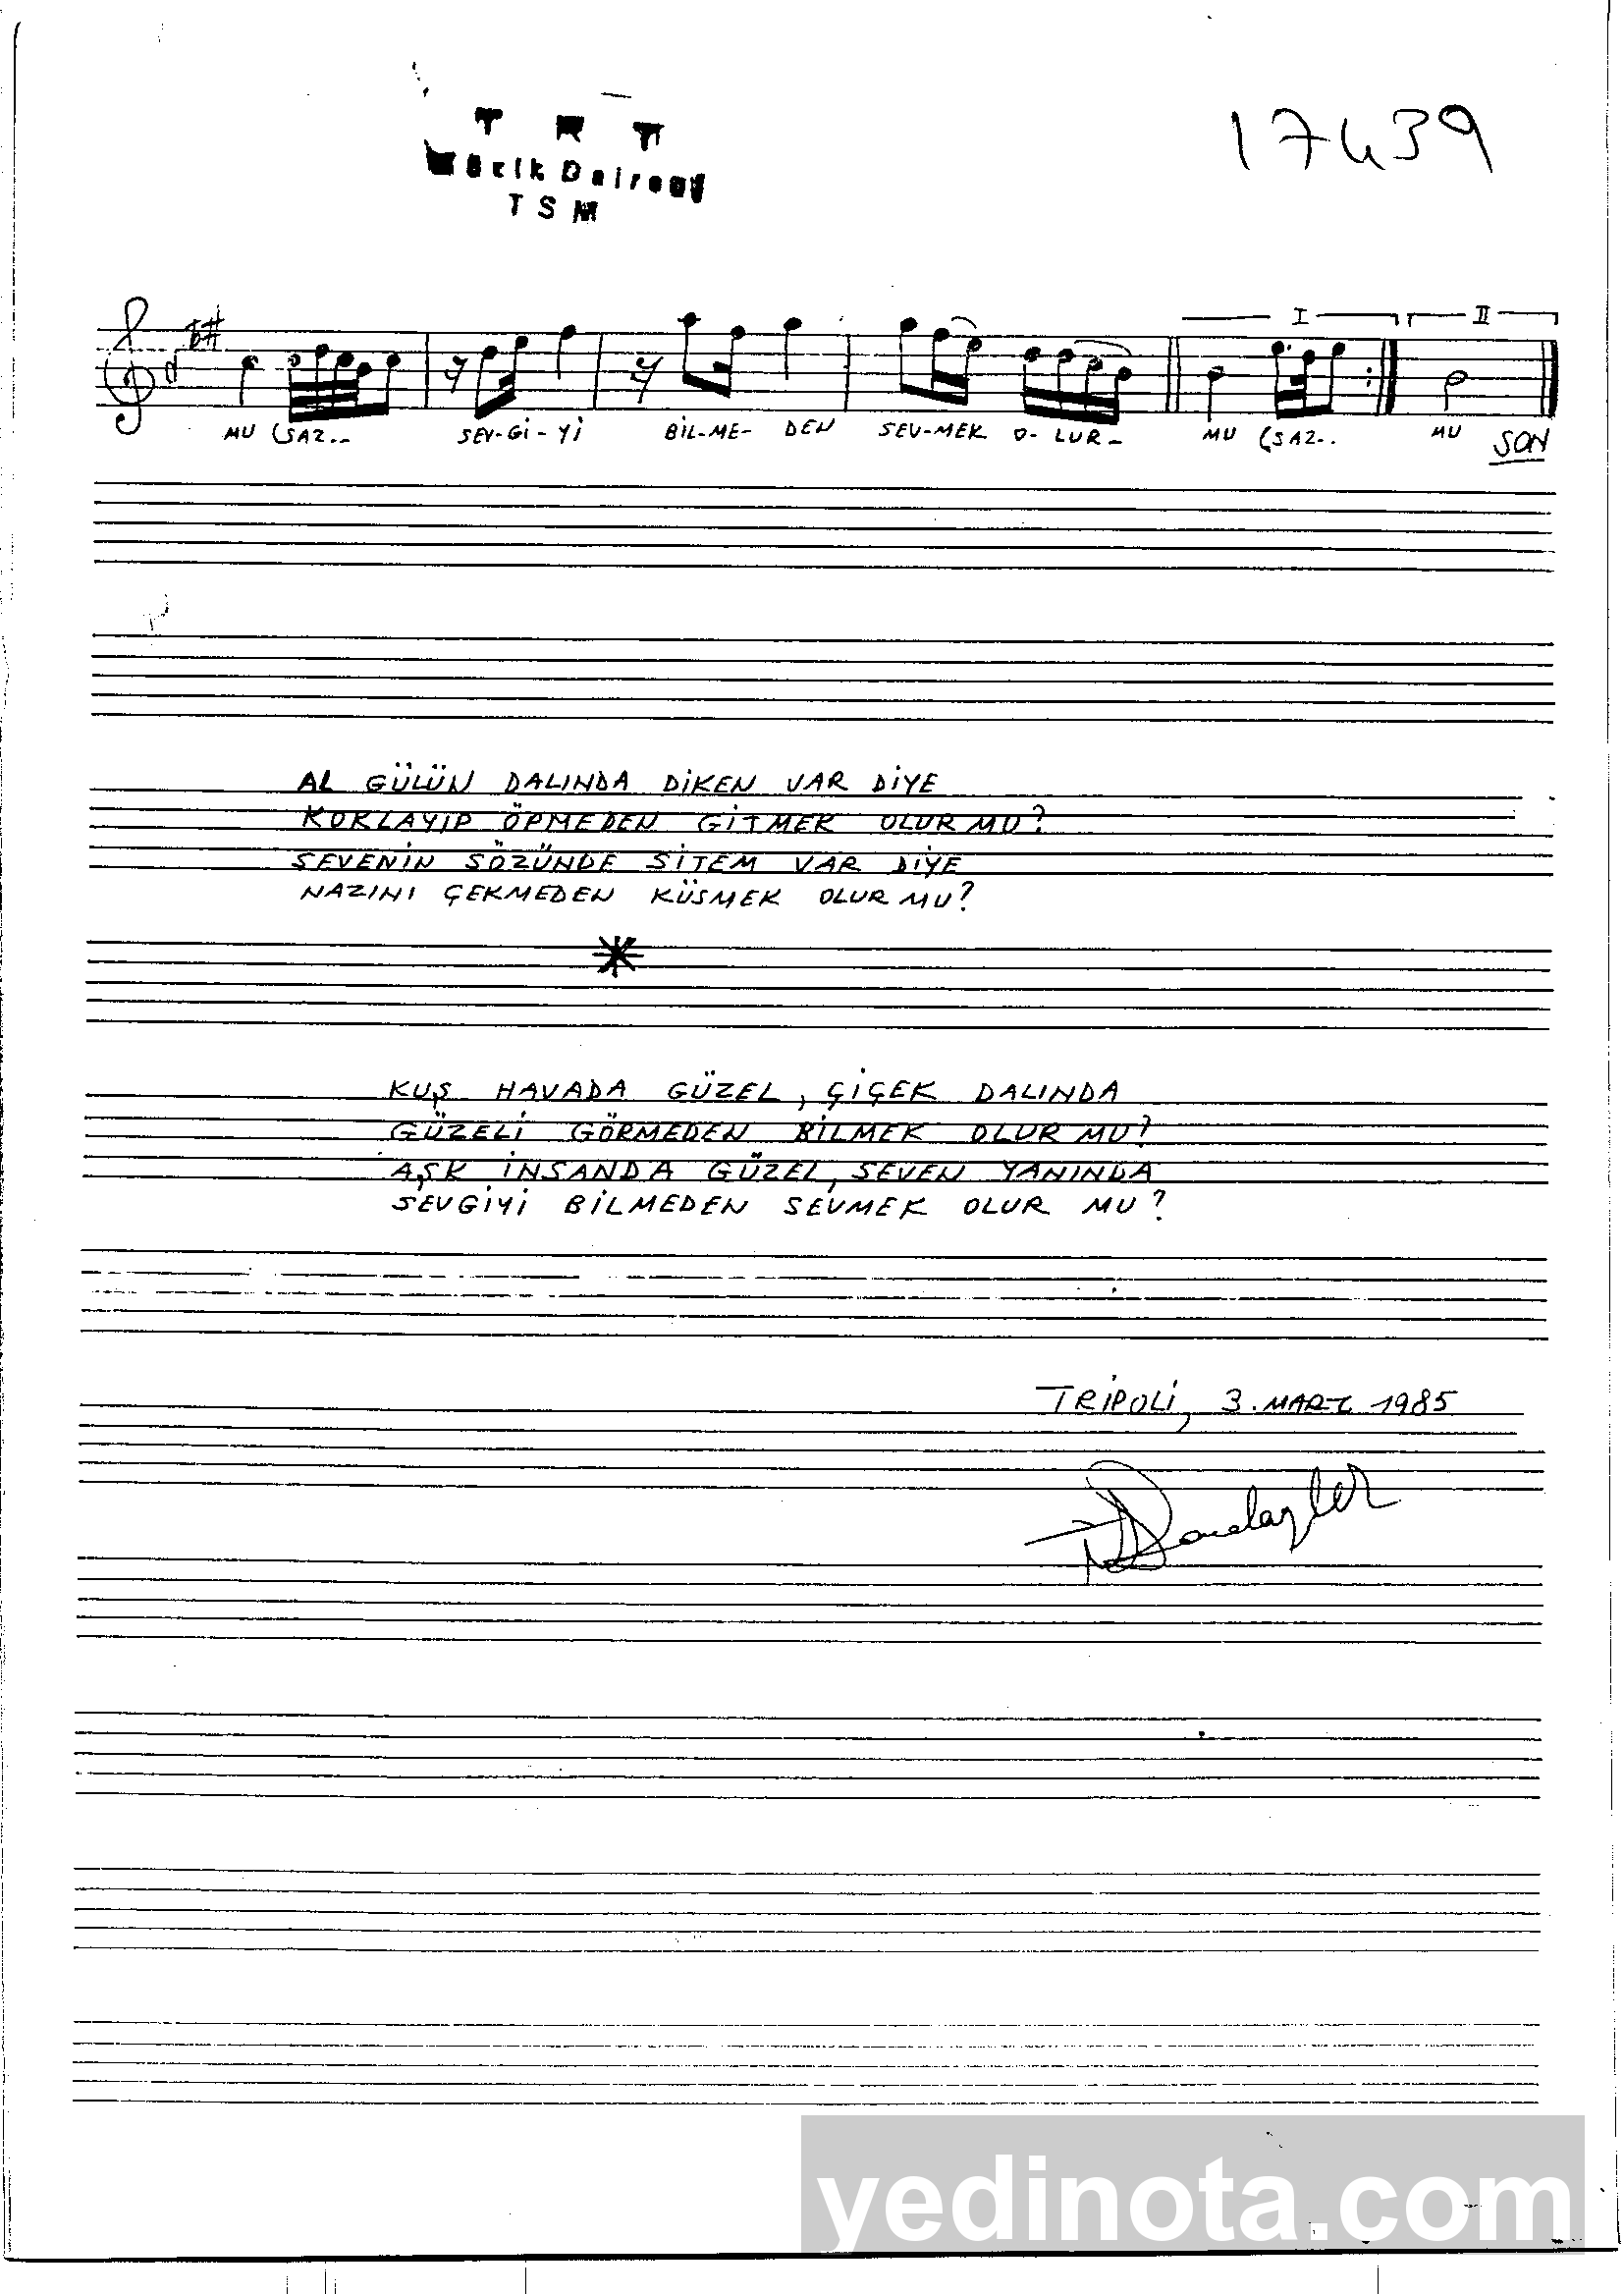 T R T
Müzik Dairesi
TSM
17439
I II
MU (SAZ.. SEV-Gİ-Yİ BİL-ME-DEN SEV-MEK O-LUR- MU (SAZ.. MU SON
AL GÜLÜN DALINDA DİKEN VAR DİYE
KOKLAYIP ÖPMEDEN GİTMEK OLUR MU?
SEVENİN SÖZÜNDE SİTEM VAR DİYE
NAZINI ÇEKMEDEN KÜSMEK OLUR MU?
KUŞ HAVADA GÜZEL, ÇİÇEK DALINDA
GÜZELİ GÖRMEDEN BİLMEK OLUR MU?
AŞK İNSANDA GÜZEL, SEVEN YANINDA
SEVGİYİ BİLMEDEN SEVMEK OLUR MU?
TRİPOLİ, 3. MART 1985
yedinota.com